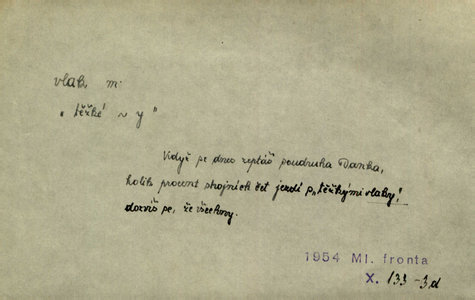 vlak, m.
„těžké ~y"
Když se dnes zeptáš soudruha Danka,
kolik procent strojních čet jezdí s „těžkými vlaky",
dozvíš se, že všechny.
1954 Ml. fronta
X. 133 -3d